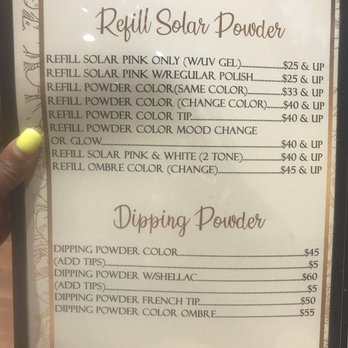 Refill Solar Powder
REFILL SOLAR PINK ONLY (W/UV GEL)...............$25 & UP
REFILL SOLAR PINK W/REGULAR POLISH.......$25 & UP
REFILL POWDER COLOR(SAME COLOR).........$33 & UP
REFILL POWDER COLOR (CHANGE COLOR)..$40 & UP
REFILL POWDER COLOR TIP............................$40 & UP
REFILL POWDER COLOR MOOD CHANGE
OR GLOW..........................................................$40 & UP
REFILL SOLAR PINK & WHITE (2 TONE).........$40 & UP
REFILL OMBRE COLOR (CHANGE)....................$45 & UP
Dipping Powder
DIPPING POWDER COLOR......................................$45
(ADD TIPS)..............................................................$5
DIPPING POWDER W/SHELLAC.............................$60
(ADD TIPS)..............................................................$5
DIPPING POWDER FRENCH TIP............................$50
DIPPING POWDER COLOR OMBRE........................$55